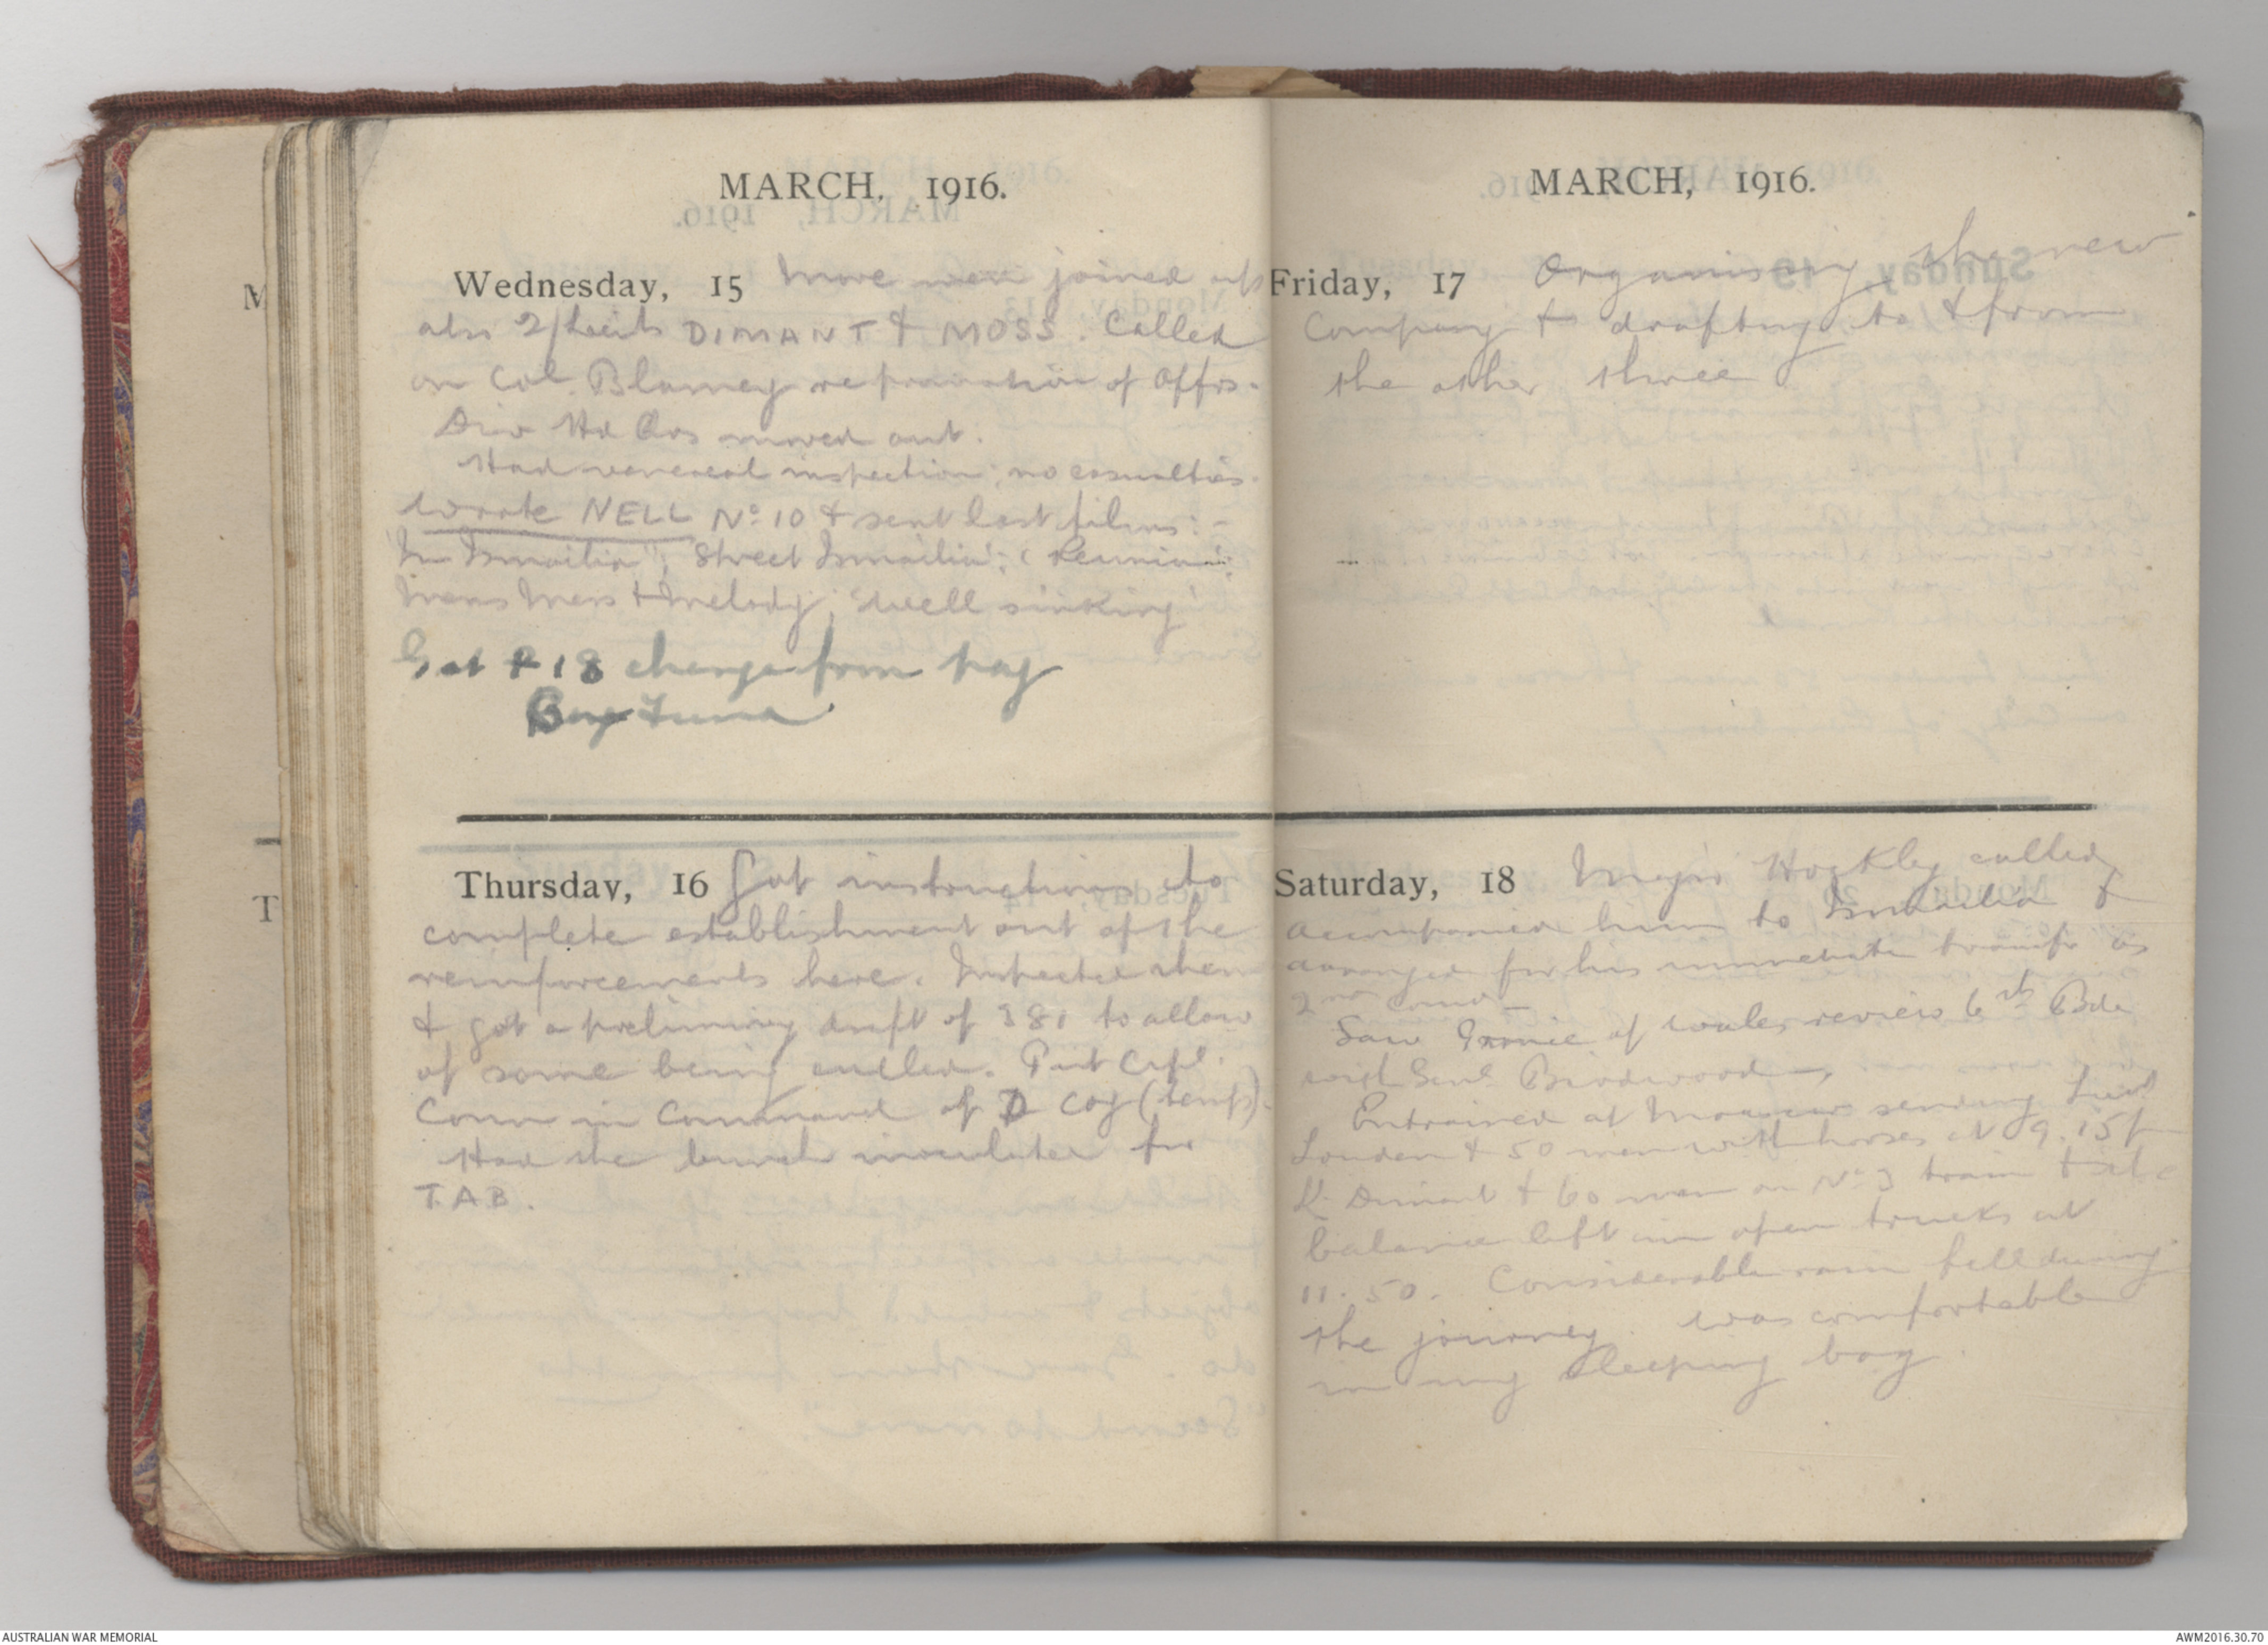 MARCH, 1916.
Wednesday, 15 More men joined up
also 2/Lieuts DIMANT & MOSS. Called
on Col. Blamey re promotion of Offrs.
Div Hd Qrs moved out.
Had venereal inspection; no casualties.
Wrote NELL No 10 & sent last films:-
"In Ismailia"; Street Ismailia"; "Reunion";
Mens Mess & Melody; Well sinking'
Got £18 change from pay
Boy Fund
Thursday, 16 Got instructions to
complete establishment out of the
reinforcements here. Inspected them
& got a preliminary draft of 381 to allow
of some being culled. Put Capt.
Conn in command of D Coy (temp).
Had the bunch inoculated for
T.A.B.
MARCH, 1916.
Friday, 17 Organising the new
Company & drafting to & from
the other three
Saturday, 18 Major Hockley called
accompanied him to Ismailia &
arranged for his immediate transfr as
2nd Comd
Saw Prince of Wales review 6th Bde
with Genl Birdwood
Entrained at Moascar sending Lieut
Louden & 50 men with horses at 9.15 p
Lt Dimant & 60 men on No 3 train & the
balance left in open trucks at
11.50. Considerable rain fell during
the journey. was comfortable
in my sleeping bag.
M
T
AUSTRALIAN WAR MEMORIAL
AWM2016.30.70